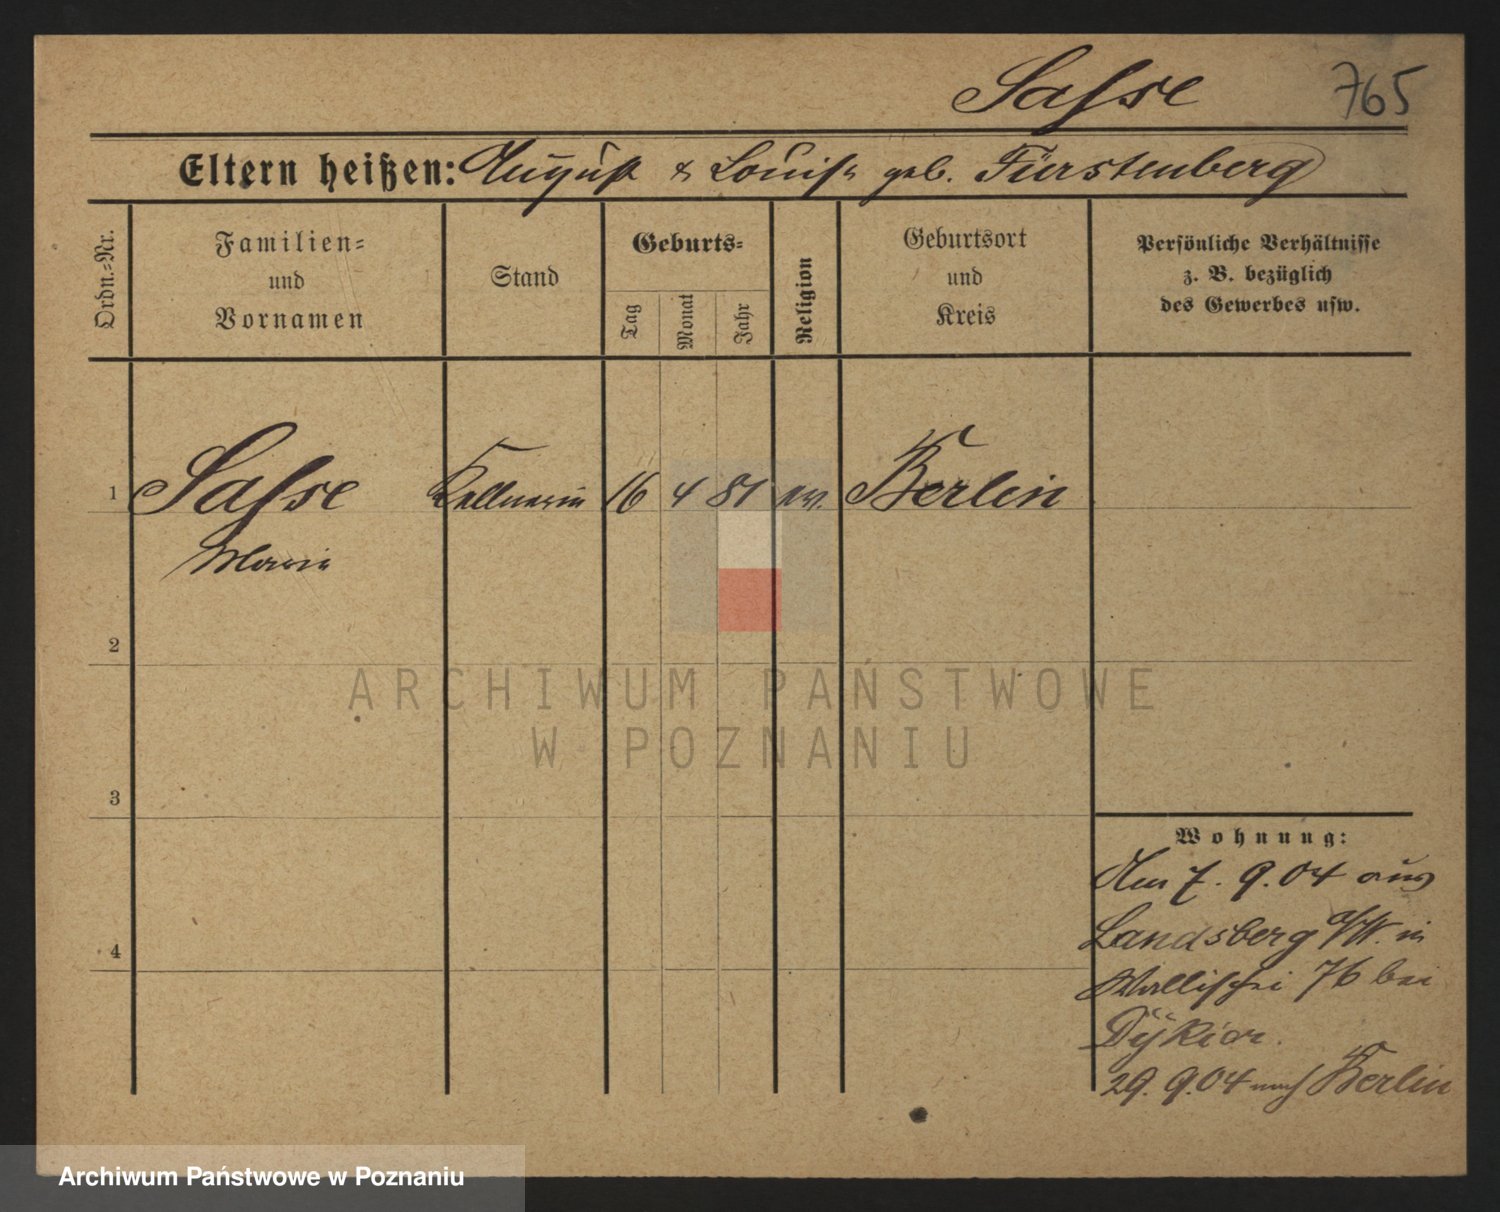 Sasse 765
Eltern heißen: August & Louise geb. Fürstenberg
Ordn.=Nr.
Familien=
und
Vornamen
Stand
Geburts=
Tag
Monat
Jahr
Religion
Geburtsort
und
Kreis
Persönliche Verhältnisse
z. B. bezüglich
des Gewerbes usw.
1 Sasse Kellnerin 16 4 81 ev. Berlin
Marie
2
ARCHIWUM PAŃSTWOWE
W POZNANIU
3
Wohnung:
Am 7. 9. 04 aus
4 Landsberg a/W. in
Wallischei 76 bei
29. 9. 04 nach Berlin
Archiwum Państwowe w Poznaniu